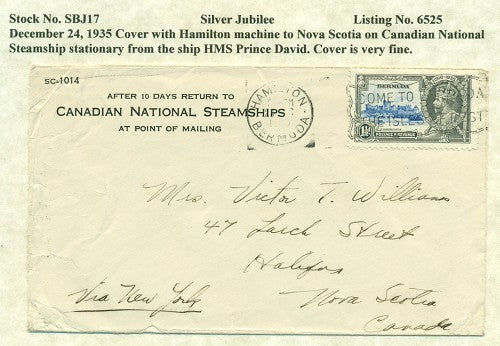 Stock No. SBJ17 Silver Jubilee Listing No. 6525
December 24, 1935 Cover with Hamilton machine to Nova Scotia on Canadian National
Steamship stationary from the ship HMS Prince David. Cover is very fine.
SC-1014
AFTER 10 DAYS RETURN TO
CANADIAN NATIONAL STEAMSHIPS
AT POINT OF MAILING
HAMILTON
BERMUDA
BERMUDA
OME TO
THE ISLES
POSTAGE & REVENUE
Mrs. Victor T. Williams
47 Larch Street
Halifax
Via New York
Nova Scotia
Canada